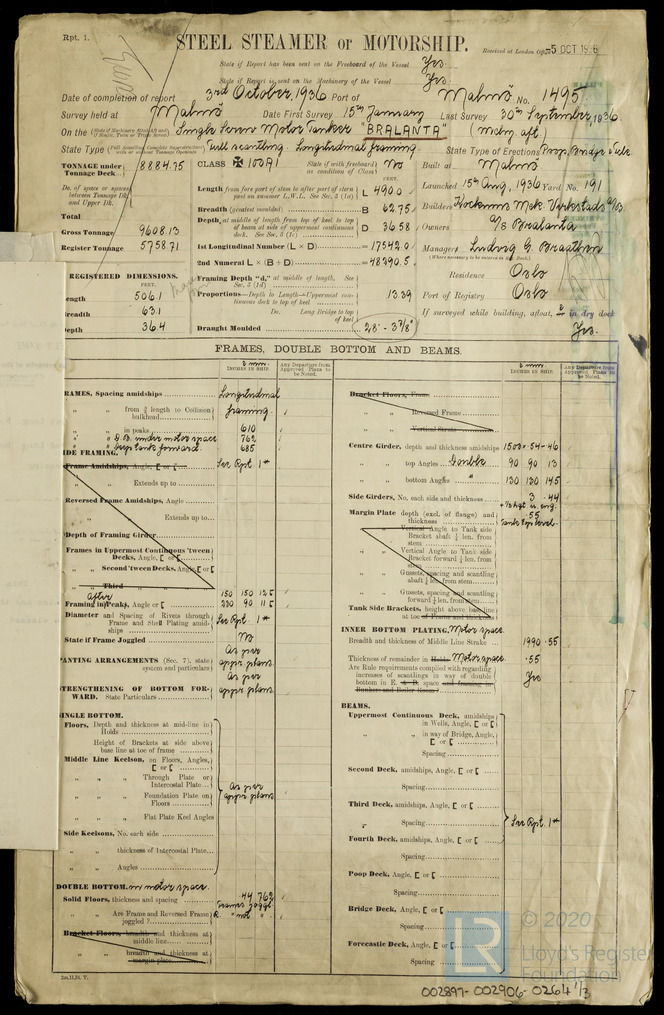 Rpt. 1.
STEEL STEAMER or MOTORSHIP.
Received at London Office -5 OCT 1936
State if Report has been sent on the Freeboard of the Vessel Yes
State if Report is sent on the Machinery of the Vessel Yes
Date of completion of report 3rd October, 1936 Port of Malmö No. 1495
Survey held at Malmö Date First Survey 15th January Last Survey 30th September, 1936
On the Single Screw Motor Tanker "BRALANTA" (mchy aft.)
State Type Full scantling. Longitudinal framing State Type of Erections Poop, Bridge
TONNAGE under Tonnage Deck 8884.75
CLASS ✠ 100A1 State if with freeboard as condition of Class No
Built at Malmö
Launched 15th Aug, 1936 Yard No. 191
Builders Kockums Mek. Verkstads A/B
Owners A/S Bralanta
Managers Ludvig G. Braathen
Residence Oslo
Port of Registry Oslo
If surveyed while building, afloat, or in dry dock
Yes.
Total
Gross Tonnage 9608.13
Register Tonnage 5758.71
REGISTERED DIMENSIONS.
FEET.
Length 506.1
Breadth 63.1
Depth 36.4
Length from fore part of stem to after part of stern post on summer L.W.L. See Sec. 3 (1a) L 490.0
Breadth (greatest moulded) B 62.75
Depth, at middle of length from top of keel to top of beam at side of uppermost continuous deck. See Sec. 3 (1c) D 36.58
1st Longitudinal Number (L × D) = 17542.0
2nd Numeral L × (B + D) = 48290.5
Framing Depth "d," at middle of length, See Sec. 3 (1d)
Proportions—Depth to Length—Uppermost continuous deck to top of keel 13.39
Do. Long Bridge to top of keel
Draught Moulded 28' - 3 7/8"
FRAMES, DOUBLE BOTTOM AND BEAMS.
INCHES IN SHIP.
Any Departure from Approved Plans to be Noted.
FRAMES, Spacing amidships Longitudinal
" " from ⅕ length to Collision bulkhead framing
" " in peaks 610
" " D.B. under motor space 762
" " deep tank forward 685
SIDE FRAMING.
Frame Amidships, Angle, [ or [ See Rpt 1*
" " Extends up to
Reversed Frame Amidships, Angle
" " Extends up to
Depth of Framing Girder
Frames in Uppermost Continuous 'tween Decks, Angle, [ or [
" " Second 'tween Decks, Angle, [ or [
" " Third
After 150 150 12.5
Framing in Peaks, Angle or [ 230 90 11.5
Diameter and Spacing of Rivets through Frame and Shell Plating amidships See Rpt 1*
State if Frame Joggled No
PANTING ARRANGEMENTS (Sec. 7), state system and particulars As per appr. plans
STRENGTHENING OF BOTTOM FORWARD. State Particulars As per appr. plans
SINGLE BOTTOM.
Floors, Depth and thickness at mid-line in Holds
Height of Brackets at side above base line at toe of frame
Middle Line Keelson, on Floors, Angles, [ or [
" " Through Plate or Intercostal Plate
" " Foundation Plate on Floors
" " Flat Plate Keel Angles
As per appr. plans
Side Keelsons, No. each side
" " thickness of Intercostal Plate
" " Angles
DOUBLE BOTTOM in motor space
Solid Floors, thickness and spacing .44 762
" " Are Frame and Reversed Frame joggled? Frames joggl. R. " not "
Bracket Floors, breadth and thickness at middle line
" " breadth and thickness at margin plate
Bracket Floors, Frame
" " Reversed Frame
" " Vertical Struts
Centre Girder, depth and thickness amidships 1500 .54-.46
" " top Angles Double 90 90 13
" " bottom Angles " 130 130 14.5
Side Girders, No. each side and thickness 3 .44
Margin Plate depth (excl. of flange) and thickness .55
Tank top level
" " Vertical Angle to Tank side Bracket abaft ¼ len. from stem
" " Vertical Angle to Tank side Bracket forward ¼ len. from stem
" " Gussets, spacing and scantling abaft ¼ len. from stem
" " Gussets, spacing and scantling forward ¼ len. from stem
Tank Side Brackets, height above base line at toe of Frame and thickness
INNER BOTTOM PLATING. Motor space.
Breadth and thickness of Middle Line Strake 1990 .55
Thickness of remainder in Holds Motor space .55
Are Rule requirements complied with regarding increases of scantlings in way of double bottom in E. & B. space and framing in Bunkers and Boiler Room? Yes
BEAMS.
Uppermost Continuous Deck, amidships in Wells, Angle, [ or [
" " in way of Bridge, Angle, [ or [
Spacing
Second Deck, amidships, Angle, [ or [
Spacing
Third Deck, amidships, Angle, [ or [
" Spacing
See Rpt. 1*
Fourth Deck, amidships, Angle, [ or [
Spacing
Poop Deck, Angle, [ or [
Spacing
Bridge Deck, Angle, [ or [
Spacing
Forecastle Deck, Angle, [ or [
Spacing
LR © 2020
Lloyd's Register
Foundation
002897-002906-0264 1/3